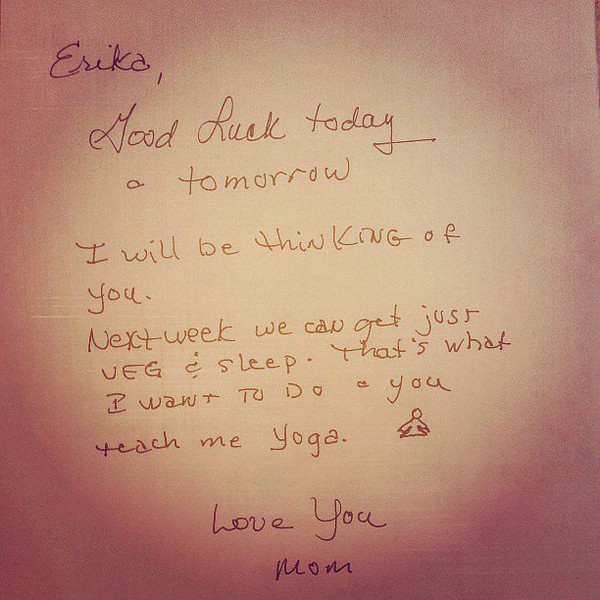 Erika,
Good Luck today
& tomorrow
I will be thinking of
you.
Next week we can get just
VEG & sleep. That's what
I want to Do & you
teach me yoga.
Love You
Mom